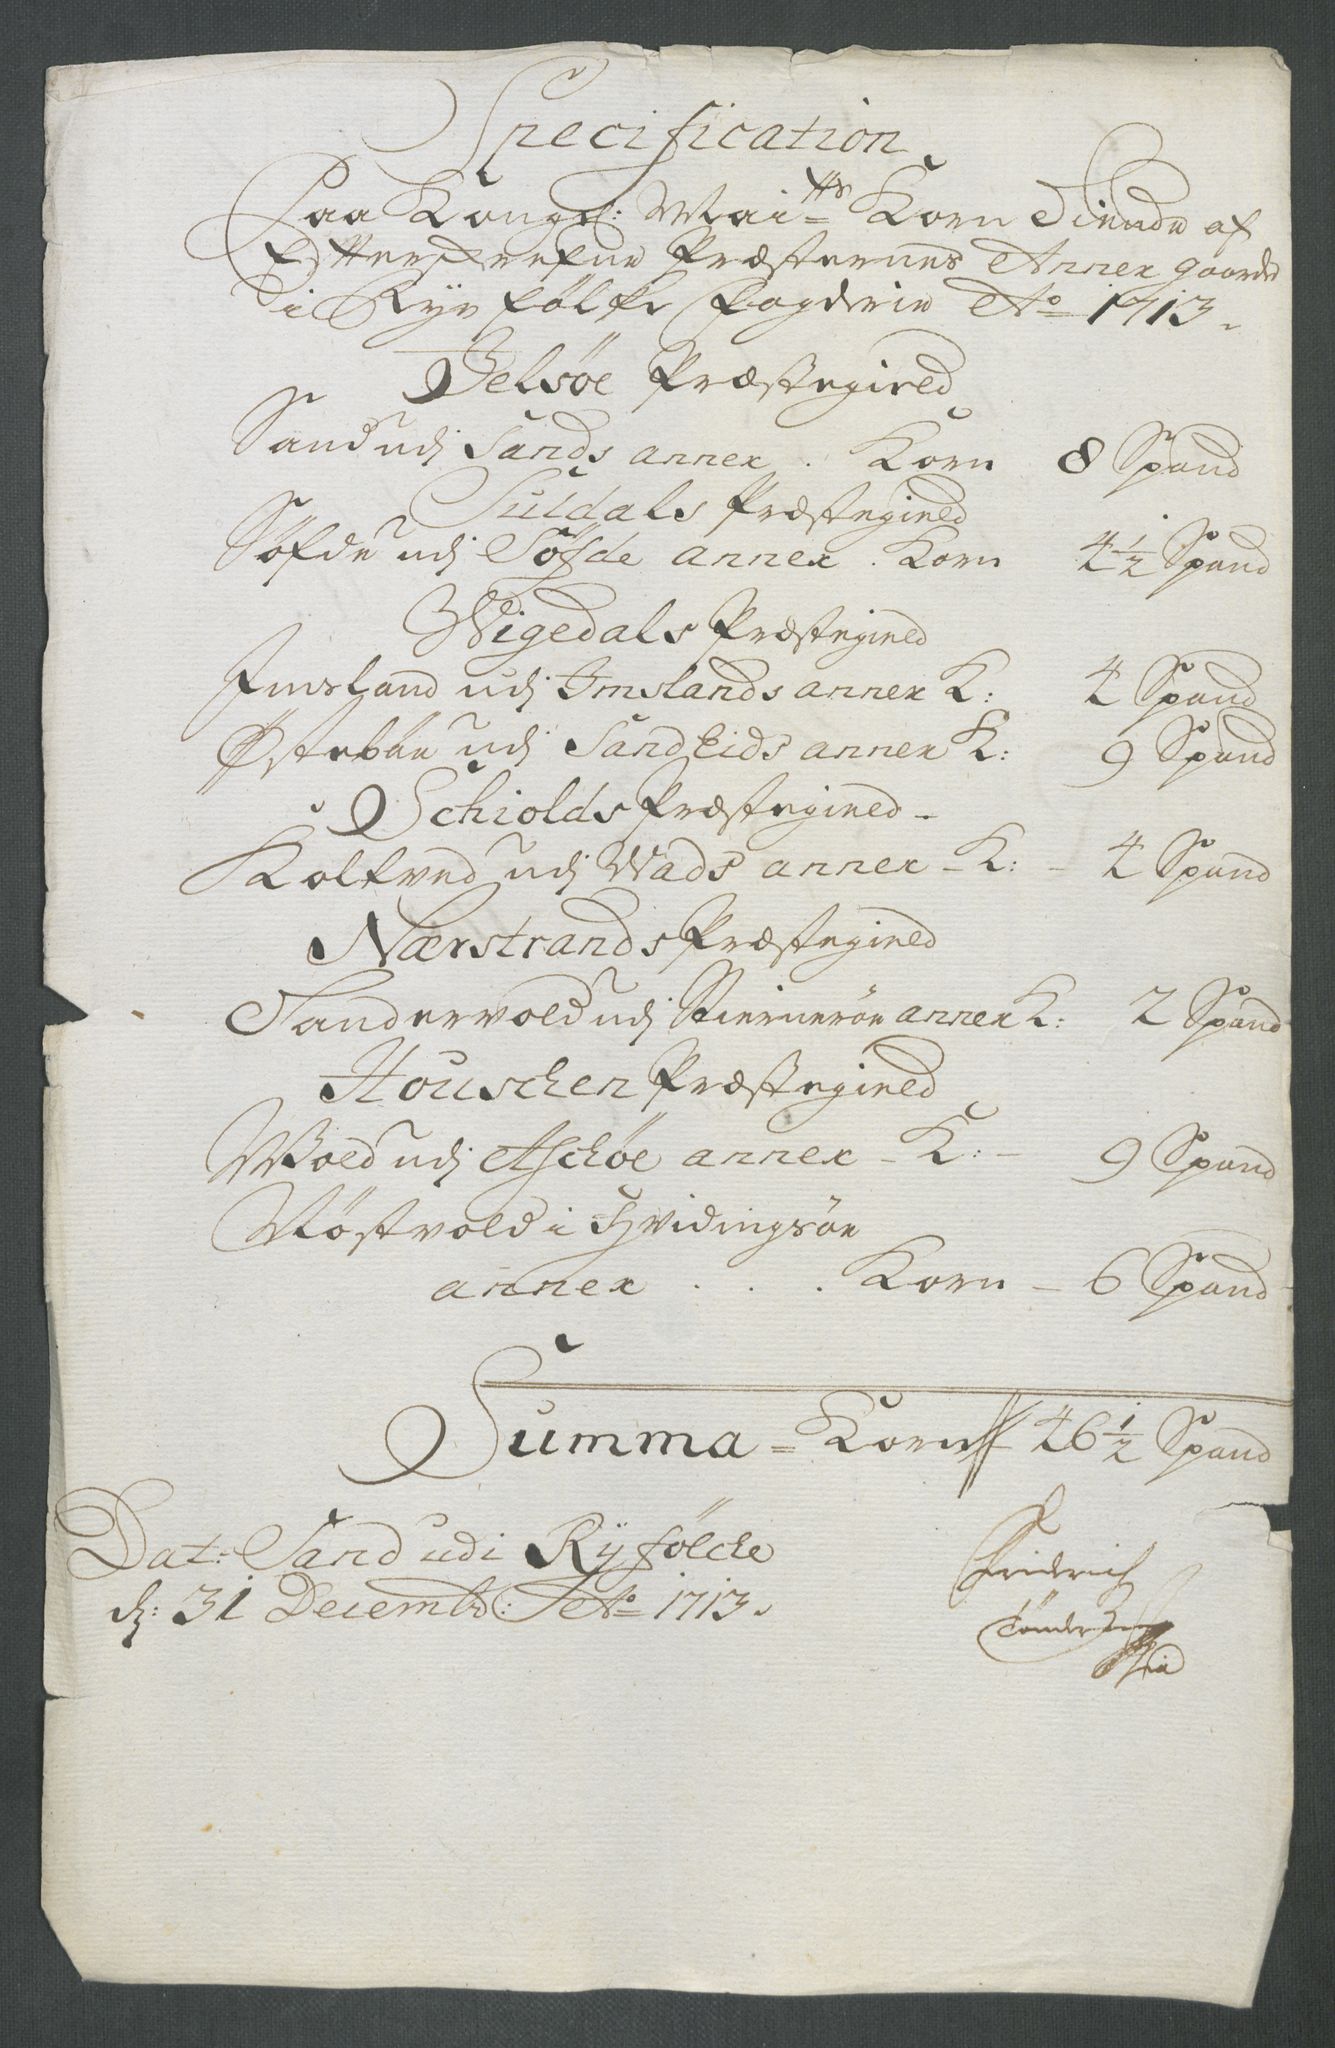 Specification
Paa Kongl: Maits Korn Tiende af
Efterskrefne Præsternes Annex gaarde
i Ryefølke fogderie Ao 1713.
Jelsøe Præstegield
Sand udj Sands annex . Korn 8 Spand
Suldals Præstegield
Søfde udj Søfde annex . Korn 4½ Spand
Wigedals Præstegield
Imsland udj Imslands annex K: 4 Spand
Østebøe udj Sandeids annex K: 9 Spand
Schiolds Præstegield -
Kolftved udj Wads annex - K: - 4 Spand
Nærstrands Præstegield
Sandervold udj Stiernerøe annex K: 2 Spand
Houschen Præstegield
Wold udj Aschøe annex - K: - 9 Spand
Nøstvold i Hvidingsøe
annex . . . Korn - 6 Spand
Summa = Korn 46½ Spand
Dat: Sand udi Ryfølcke
d: 31 Decembr: Ao 1713.
Fridrich